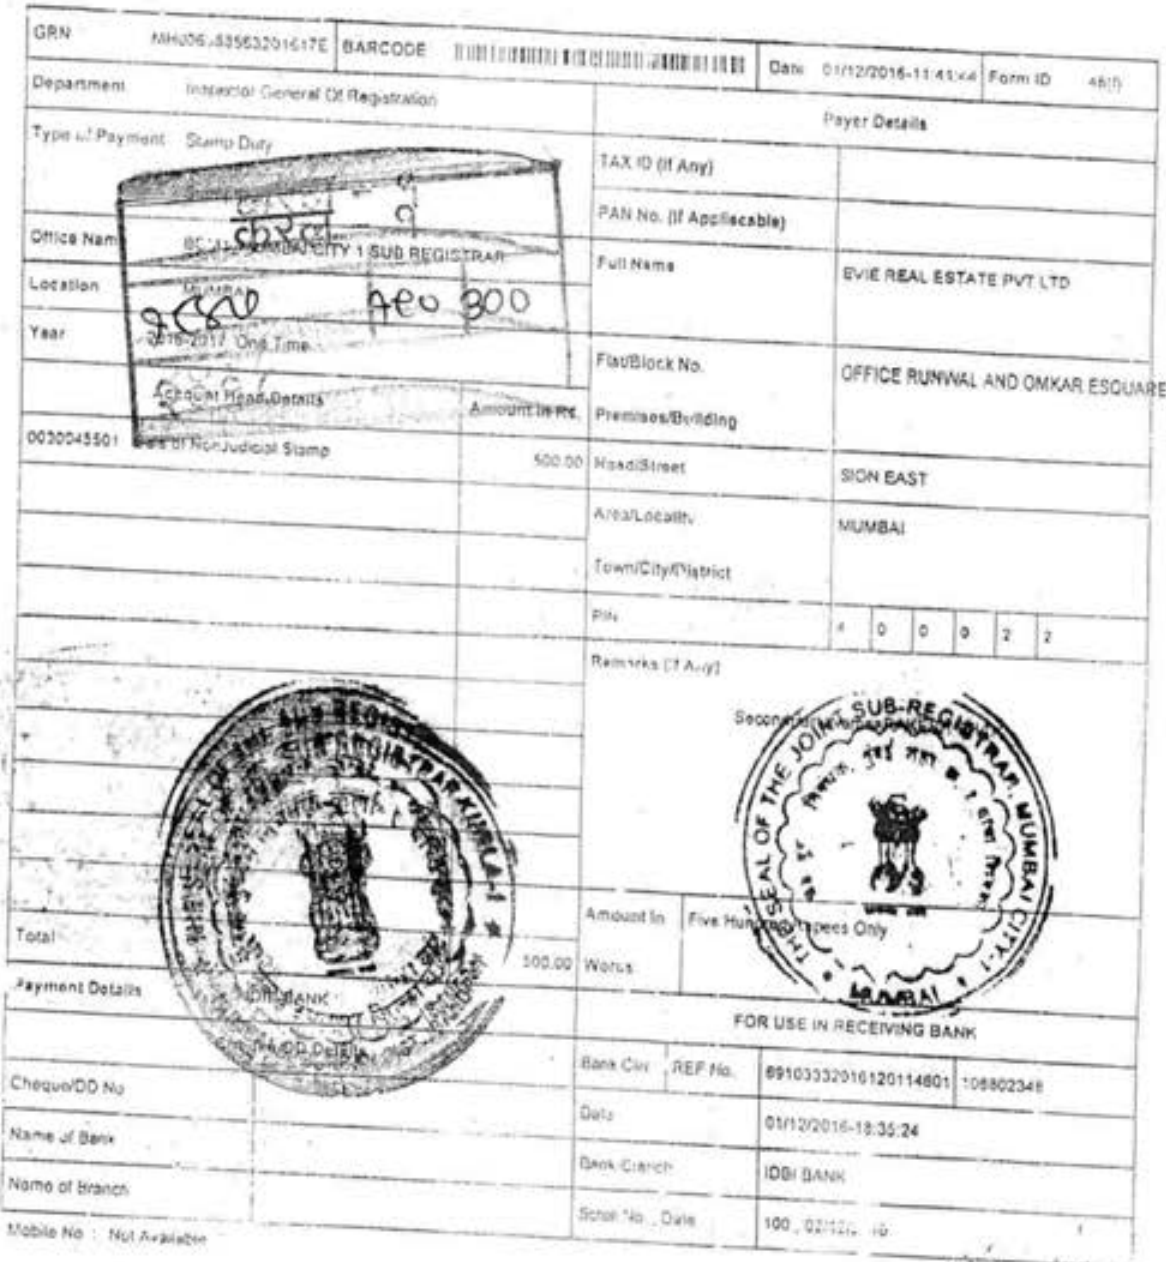 GRN BARCODE Date 01/12/2016-11:41:44 Form ID
Department Inspector General Of Registration Payer Details
Type of Payment Stamp Duty
TAX ID (If Any)
PAN No. (If Appliscable)
Office Nam MUMBAI CITY 1 SUB REGISTRAR
Full Name EVIE REAL ESTATE PVT LTD
Location MUMBAI
300
Year 2016-2017 One Time
Flat/Block No. OFFICE RUNWAL AND OMKAR ESQUARE
Premises/Building
Account Head Details Amount In Rs.
0030045501 Sale of NonJudicial Stamp 500.00
Road/Street SION EAST
Area/Locality MUMBAI
Town/City/District
PIN 4 0 0 0 2 2
Remarks (If Any)
THE SEAL OF THE JOINT SUB-REGISTRAR, MUMBAI CITY-1
MUMBAI
SUB REGISTRAR KURLA-1
Total 500.00
Amount In Five Hundred Rupees Only
Words
Payment Details IDBI BANK
FOR USE IN RECEIVING BANK
Cheque/DD Details
Bank CIN REF No. 69103332016120114601 106802346
Cheque/DD No
Date 01/12/2016-18:35:24
Name of Bank
Bank-Branch IDBI BANK
Name of Branch
Scroll No. , Date 100 ,
Mobile No : Not Available